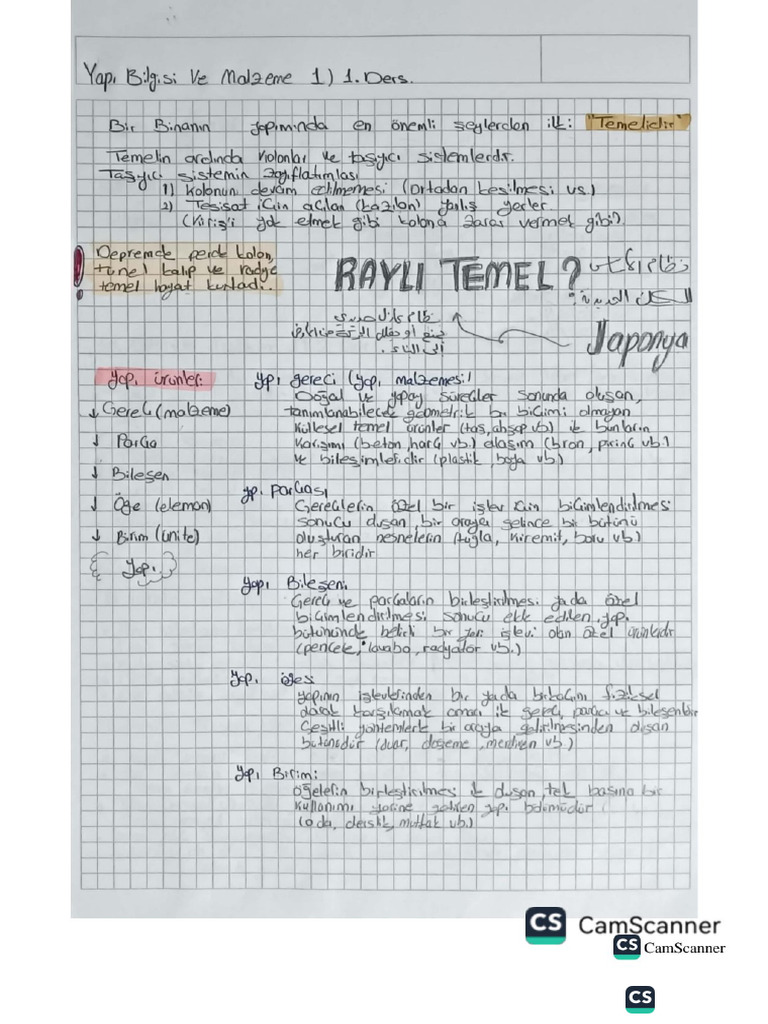 Yapı Bilgisi Ve Malzeme 1) 1. Ders.
Bir Binanın yapımında en önemli şeylerden ilk: "Temelidir"
Temelin ardında kolonlar ve taşıyıcı sistemlerdir.
Taşıyıcı sistemin zayıflatılması
1) Kolonun devam edilmemesi (Ortadan kesilmesi vs.)
2) Tesisat için açılan (kazılan) yanlış yerler.
(Kiriş'i yok etmek gibi kolona zarar vermek gibi).
! Depremde perde kolon,
tünel kalıp ve radye
temel hayat kurtardı..
RAYLI TEMEL ?
نظام
السكك الحديدية؟
Japonya
نظام
Yapı ürünleri:
↓ Gereç (malzeme)
↓ Parça
↓ Bileşen
↓ Öge (eleman)
↓ Birim (ünite)
Yapı.
yapı gereci (yapı malzemesi)
Doğal ve yapay süreçler sonunda oluşan,
tanımlanabilecek geometrik bir biçimi olmayan
kütlesel temel ürünler (taş, ahşap vb) ile bunların
karışımı (beton, harç vb.) alaşım (bron, pirinç vb.)
ve bileşimleridir (plastik, boya vb.)
yp. parçası
Gereçlerin özel bir işlev için biçimlendirilmesi
sonucu oluşan, bir araya gelince bir bütünü
oluşturan nesnelerin (tuğla, kiremit, boru vb)
her biridir
yapı Bileşeni
Gereç ve parçaların birleştirilmesi ya da özel
biçimlendirilmesi sonucu elde edilen, yapı
bütününde belirli bir yeri işlevi olan özel ürünlerdir
(pencere, lavabo, radyatör vb.)
Yap. ögesi
yapının işlevlerinden bir yada birkaçını fiziksel
olarak karşılamak amacı ile gereç, parça ve bileşenlerin
Çeşitli yöntemlerle bir araya getirilmesinden oluşan
bütünüdür (duvar, döşeme, merdiven vb.)
Yapı Birimi:
ögelerin birleştirilmesi ile oluşan, tek başına bir
kullanımı yerine getiren yapı bölümüdür
(oda, derslik, mutfak vb.)
CS CamScanner
CS CamScanner
CS